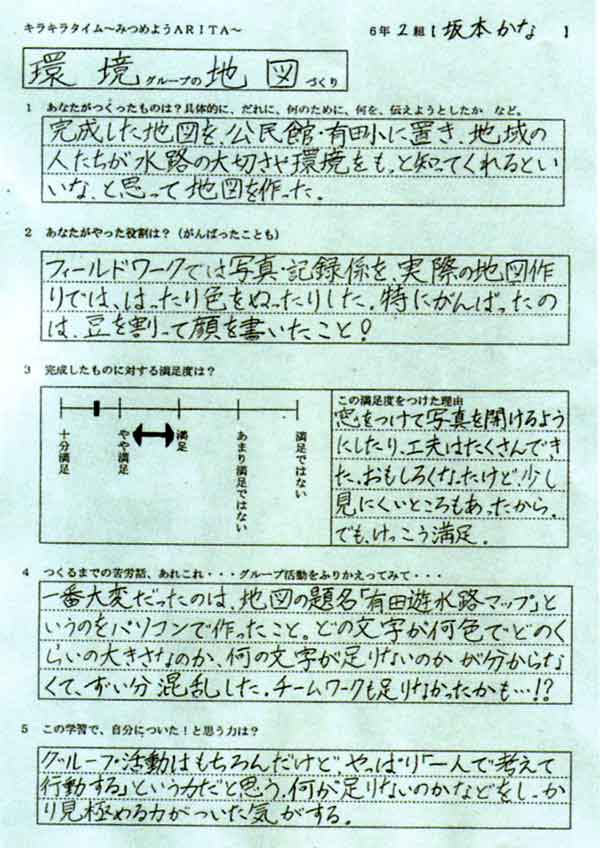 キラキラタイム～みつめようARITA～ 6年 2組【 坂本かな 】
環境グループの地図づくり
1 あなたがつくったものは？具体的に、だれに、何のために、何を、伝えようとしたか など。
完成した地図を、公民館・有田小に置き、地域の
人たちが水路の大切さや環境をもっと知ってくれるとい
いな、と思って地図を作った。
2 あなたがやった役割は？（がんばったことも）
フィールドワークでは写真・記録係を、実際の地図作
りでは、はったり色をぬったりした。特にがんばったの
は、豆を割って顔を書いたこと！
3 完成したものに対する満足度は？
十分満足
やや満足
満足
あまり満足ではない
満足ではない
この満足度をつけた理由
窓をつけて写真を開けるよう
にしたり、工夫はたくさんでき
た。おもしろくなったけど、少し
見にくいところもあったから。
でも、けっこう満足。
4 つくるまでの苦労話、あれこれ・・・グループ活動をふりかえってみて・・・
一番大変だったのは、地図の題名「有田遊水路マップ」と
いうのをパソコンで作ったこと。どの文字が何色でどのく
らいの大きさなのか、何の文字が足りないのかが分からな
くて、ずい分混乱した。チームワークも足りなかったかも…!?
5 この学習で、自分についた！と思う力は？
グループ活動はもちろんだけど、やっぱり「一人で考えて
行動する」という力だと思う。何が足りないのかなどをしっか
り見極める力がついた気がする。